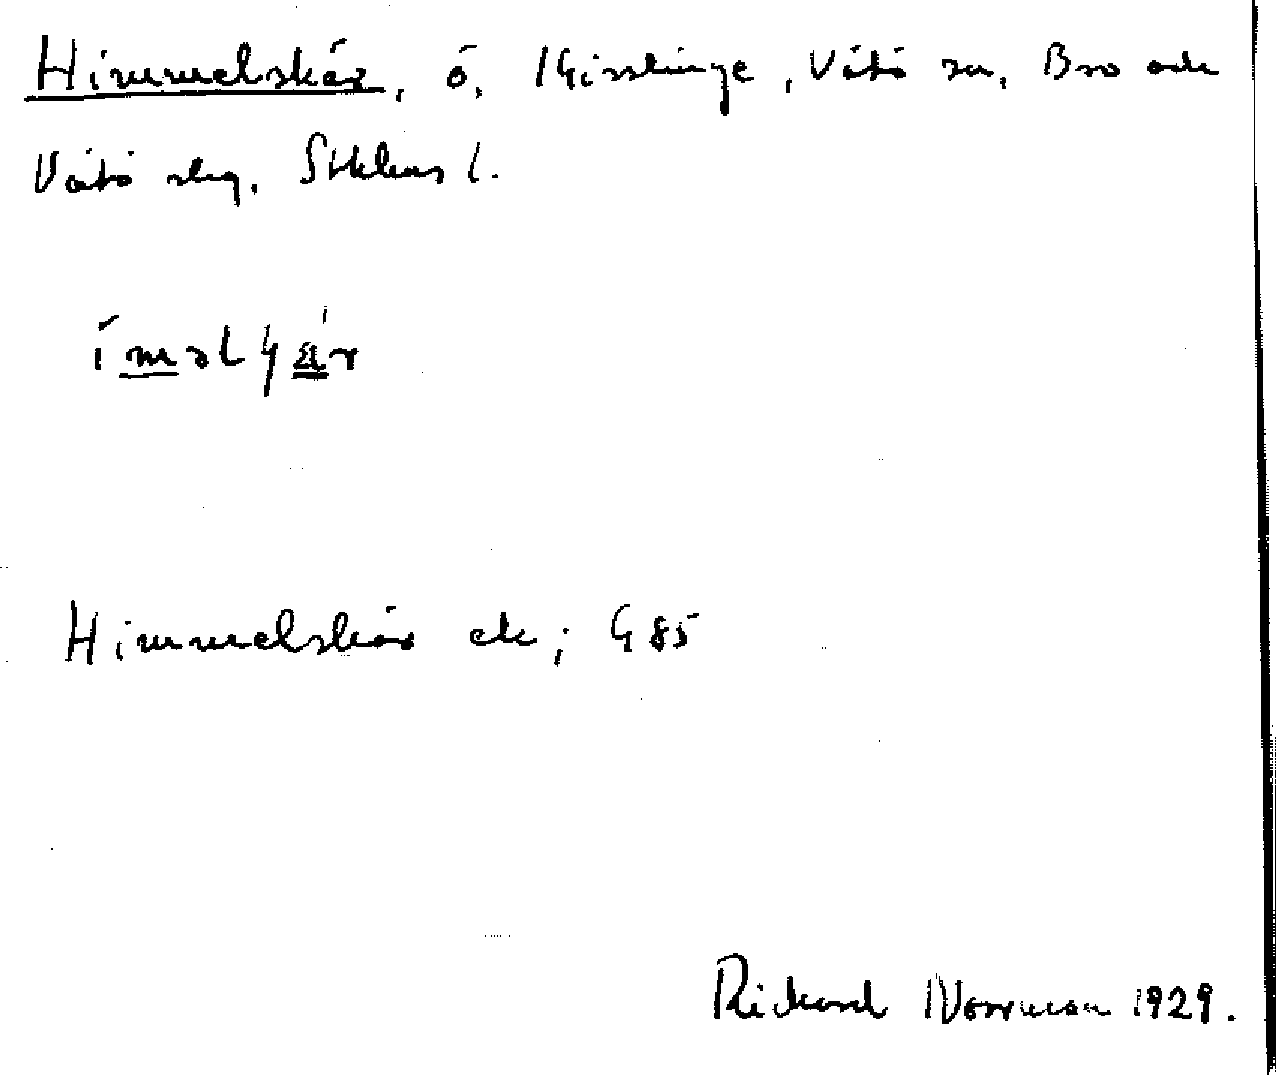 Himmelskär, ö, Gisslinge, Vätö sn, Bro och
Vätö slg. Sthlms l.
Himmelskär ek; G 85
Rickard Norrman 1929.